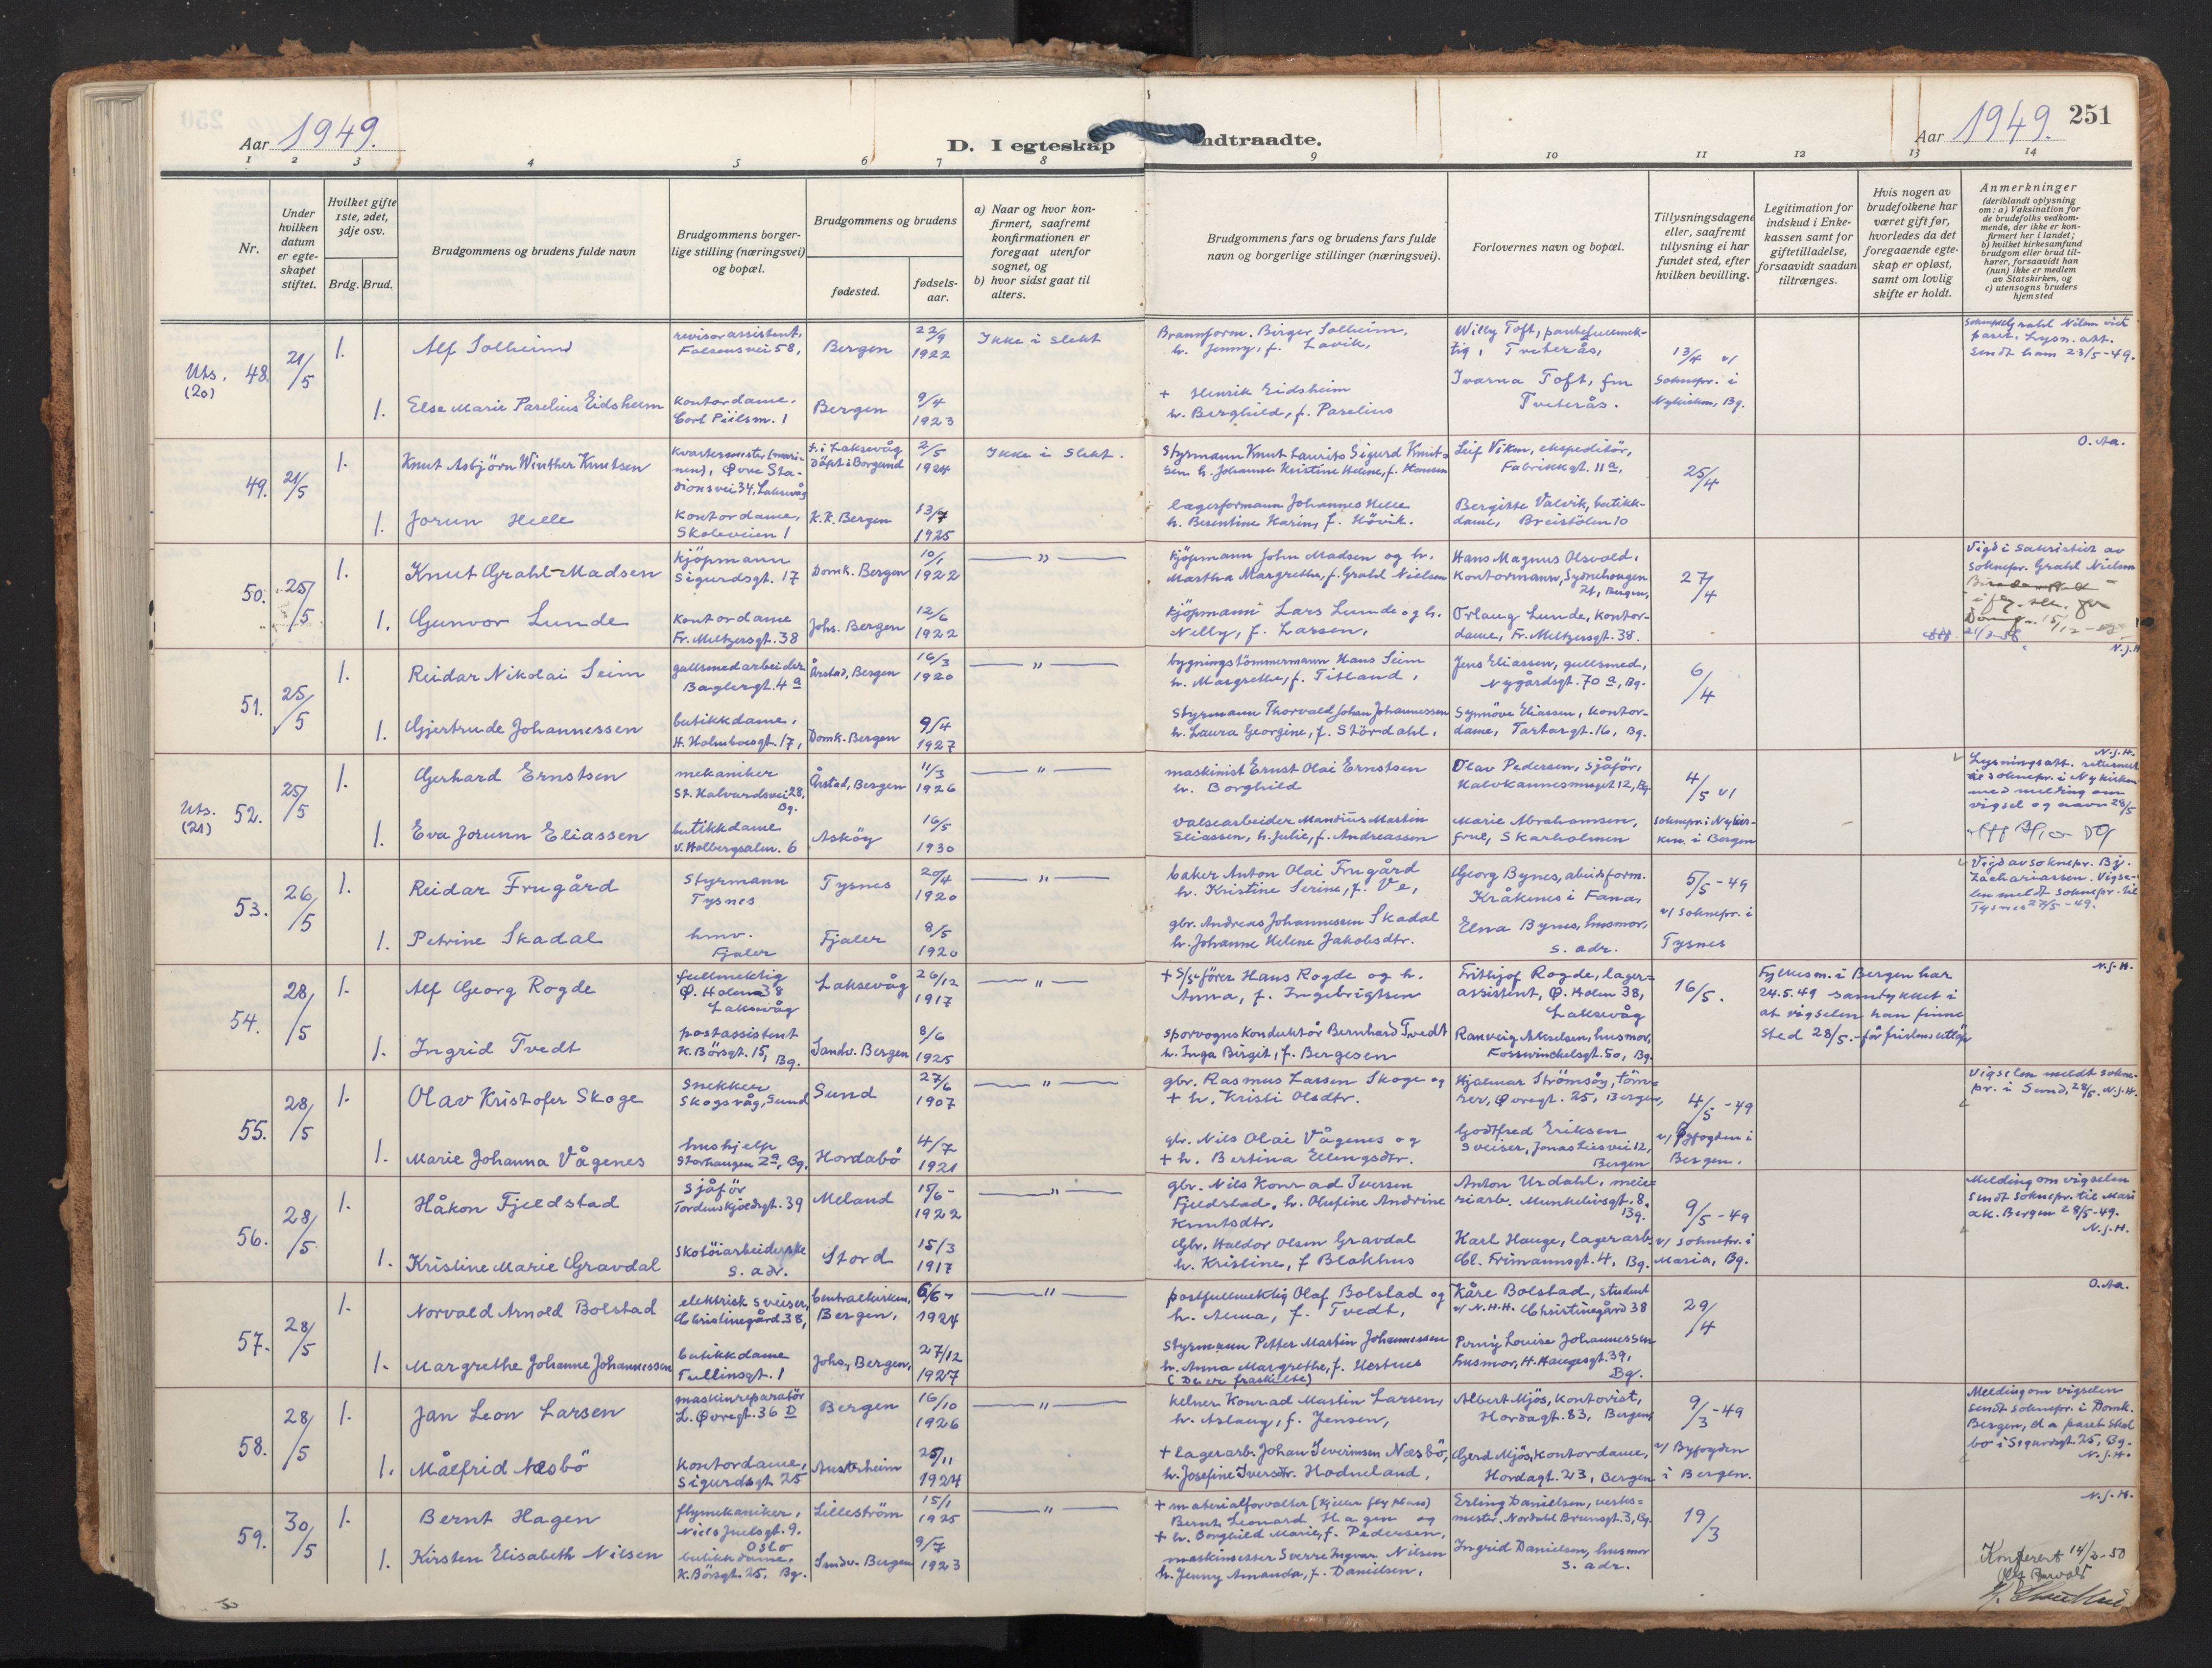 Aar 1949.
D. I egteskap indtraadte.
Aar 1949. 251
1 2 3 4 5 6 7 8 9 10 11 12 13 14
Nr.
Under hvilken datum er egte-skapet stiftet.
Hvilket gifte 1ste, 2det, 3dje osv.
Brdg. Brud.
Brudgommens og brudens fulde navn
Brudgommens borger-lige stilling (næringsvei) og bopæl.
Brudgommens og brudens
fødested.
fødsels-aar.
a) Naar og hvor kon-firmert, saafremt konfirmationen er foregaat utenfor sognet, og
b) hvor sidst gaat til alters.
Brudgommens fars og brudens fars fulde navn og borgerlige stillinger (næringsvei).
Forlovernes navn og bopæl.
Tillysningsdagene eller, saafremt tillysning ei har fundet sted, efter hvilken bevilling.
Legitimation for indskud i Enke-kassen samt for giftetilladelse, forsaavidt saadan tiltrænges.
Hvis nogen av brudefolkene har været gift før, hvorledes da det foregaaende egte-skap er opløst, samt om lovlig skifte er holdt.
Anmerkninger
(deriblandt oplysning om: a) Vaksination for de brudefolks vedkom-mende, der ikke er kon-firmert her i landet;
b) hvilket kirkesamfund brudgom eller brud til-hører, forsaavidt han (hun) ikke er medlem av Statskirken, og
c) utensogns bruders hjemsted
Uts. (20) 48. 21/5 1. Alf Solheim revisorassistent, Falsensvei 58, Bergen 22/9 1922 Ikke i slekt
Brannform. Birger Solheim, h. Jenny, f. Lavik, Willy Toft, pantefullmek-tig, Tveterås, 13/4 v/
1. Else Marie Paselius Eidsheim Kontordame, Carl Piilsm. 1 Bergen 9/4 1923
+ Henrik Eidsheim h. Berghild, f. Paselius Ivarna Toft, fru Tveterås. Soknepr. i Nykirken, Bg.
Soknepr. Grahl Nilsen vigt paret. Lysn. att. sendt ham 23/5-49.
49. 21/5 1. Knut Asbjörn Winther Knutsen Kvartermester (mari-nen), Øvre Sta-dionsvei 34, Laksevåg f. i Laksevåg döpt i Borgund 2/5 1924 Ikke i slekt.
Styrmann Knut Laurits Sigurd Knut-sen h. Johanna Kristine Helene, f. Hansen Leif Viken, ekspeditör, Fabrikkgt. 11a, 25/4 O. Aa.
1. Jorun Helle Kontordame, Skoleveien 1 K.K. Bergen 13/7 1925
lagerformann Johannes Helle h. Berentine Karin, f. Hövik. Bergitte Valvik, butikk-dame, Breistölen 10
50. 25/5 1. Knut Grahl-Madsen kjöpmann Sigurdsgt. 17 Domk. Bergen 10/1 1922 — " —
kjöpmann John Madsen og h. Martha Margrethe, f. Grahl Nielsen Hans Magnus Osvold, Kontormann, Sydneshaugen 21, Bergen, 27/4
Vigd i sakristiet av soknepr. Grahl Nielsen
1. Gunvor Lunde Kontordame Fr. Meltzersgt. 38 Johs. Bergen 12/6 1922
kjöpmann Lars Lunde og h. Nelly, f. Larsen, Orlaug Lunde, kontor-dame, Fr. Meltzersgt. 38.
51. 25/5 1. Reidar Nikolai Seim gullsmedarbeider Baglergt. 4a Årstad, Bergen 16/3 1920 — " —
bygningstömmermann Hans Seim h. Margrethe, f. Titland, Jens Eliassen, gullsmed, Nygårdsgt. 70a, Bg. 6/4 N.J.H
1. Gjertrude Johannessen butikkdame, H. Holmboesgt. 17, Domk. Bergen 9/4 1927
Styrmann Thorvald Johan Johannessen h. Laura Georgine, f. Stördahl, Synnöve Eliassen, kontor-dame, Tartargt. 16, Bg.
Uts. (21) 52. 25/5 1. Gerhard Ernstsen mekaniker St. Halvardsvei 28, Bg. Årstad, Bergen 11/3 1926 — " —
maskinist Ernst Olai Ernstsen h. Borghild Olav Pedersen, sjåför, Halvkannesmuget 12, Bg 4/5 v/
1. Eva Jorunn Eliassen butikkdame v. Holbergsalm. 6 Asköy 16/5 1930
valsearbeider Mandius Martin Eliassen, h. Julie, f. Andreassen Marie Abrahamsen, frue, Skarholmen soknepr. i Nykir-ken i Bergen
N.J.H. Lysningsatt. returnert til soknepr. i Nykirken med melding om vigsel og navn 28/5
53. 26/5 1. Reidar Frugård Styrmann Tysnes Tysnes 20/4 1920 — " —
baker Anton Olai Frugård h. Kristine Serine, f. Ve, Georg Bynes, abeidsform. Kråkenes i Fana, 5/5-49
1. Petrine Skadal hmv. Fjaler Fjaler 8/5 1920
gbr. Andreas Johannesen Skadal h. Johanne Helene Jakobsdtr. Elna Bynes, husmor, s. adr. v/ soknepr. i Tysnes
Vigd av soknepr. Bj. Zachariassen. Vigse-len meldt soknepr. til Tysnes 27/5-49.
54. 28/5 1. Alf Georg Rogde fullmektig Ø. Holen 38 Laksevåg Laksevåg 26/12 1917 — " —
+ S/s-förer Hans Rogde og h. Anna, f. Ingebrigtsen Frithjof Rogde, lager-assistent, Ø. Holen 38, Laksevåg 16/5.
Fylkesm. i Bergen har 24.5.49 samtykket i at vigselen kan finne sted 28/5.-för fristens utlöp N.J.H.
1. Ingrid Tvedt postassistent K. Börsgt. 15, Bg. Sandv. Bergen 8/6 1925
Sporvognskonduktör Bernhard Tvedt h. Inga Birgit, f. Bergesen Ranveig Akselsen, husmor, Fosswinckelsgt. 50, Bg.
55. 28/5 1. Olav Kristofer Skoge Snekker Skogsvåg, Sund Sund 27/6 1907 — " —
gbr. Rasmus Larsen Skoge og + h. Kristi Olsdtr. Hjalmar Strömsöy, töm-rer, Øvregt. 25, Bergen, 4/5-49
Vigselen meldt sokne-pr. i Sund, 28/5. N.J.H.
1. Marie Johanna Vågenes hushjelp Storhaugen 2a, Bg. Hordabö 4/7 1921
gbr. Nils Olai Vågenes og + h. Bertina Ellingsdtr. Godtfred Eriksen sveiser, Jonas Liesvei 12, Bergen v/ Byfogden i Bergen.
56. 28/5 1. Håkon Fjeldstad Sjåför Tordenskjoldsgt. 39 Meland 15/6- 1922 — " —
gbr. Nils Konrad Iversen Fjeldstad, h. Olufine Andrine Knutsdtr, Anton Urdahl, meie-riarb. Munkelivsgt. 8, Bg. 9/5-49
Melding om vigselen sendt soknepr. til Mari ak. Bergen 28/5-49. N.J.H.
1. Kristine Marie Gravdal Skotöiarbeiderske s. adr. Stord 15/3 1917
Gbr. Haldor Olsen Gravdal h. Kristine, f Blakhus Karl Hauge, lagerarb. Cl. Frimannsgt. 4, Bg. v/ soknepr. i Maria, Bg.
57. 28/5 1. Norvald Arnold Bolstad elektrisk sveiser, Christinegård 38, Centralkirken, Bergen, 6/6- 1924 — " —
postfullmektig Olaf Bolstad og h. Anna, f. Tvedt, Kåre Bolstad, student v/ N.H.H. Christinegård 38 29/4 O. Aa.
1. Margrethe Johanne Johannessen butikkdame Tullinsgt. 1 Johs., Bergen, 27/12 1927
Styrmann Petter Martin Johannessen h. Anna Margrethe, f. Hestnes (De er fraskilte) Perny Louise Johannessen husmor, H. Haugesgt. 39, Bg.
58. 28/5 1. Jan Leon Larsen maskinreparatör L. Øvregt. 36 D Bergen 16/10 1926 — " —
kelner Konrad Martin Larsen, h. Aslaug, f. Jensen, Albert Mjös, Kontorist, Hordagt. 83, Bergen, 9/3-49
Melding om vigselen sendt soknepr. i Domk. Bergen, da paret skal bo i Sigurdsgt. 25, Bg. N.J.H.
1. Målfrid Næsbö Kontordame, Sigurdsgt 25 Austrheim 25/11 1924
+ lagerarb. Johan Severinsen Næsbö, h. Josefine Iversdtr. Hodneland, Gerd Mjös, Kontordame, Hordagt. 23, Bergen v/ Byfogden i Bergen.
59. 30/5 1. Bernt Hagen flymekaniker, Niels Juelsgt. 9. Oslo Lilleström 15/1 1925 — " —
+ materialforvalter (Kjeller flyplass) Bernt Leonard Hagen og + h. Borghild Marie, f. Pedersen, Erling Danielsen, verks-mester, Nordahl Brunsgt. 3, Bg. 19/3 N.J.H.
1. Kirsten Elisabeth Nilsen butikkdame, K. Börsgt. 25, Bg. Sandv. Bergen 9/7 1923
maskinsetter Sverre Ingvar Nilsen h. Jenny Amanda, f. Danielsen, Ingrid Danielsen, husmor s. adr.
Konferert 14/2-50